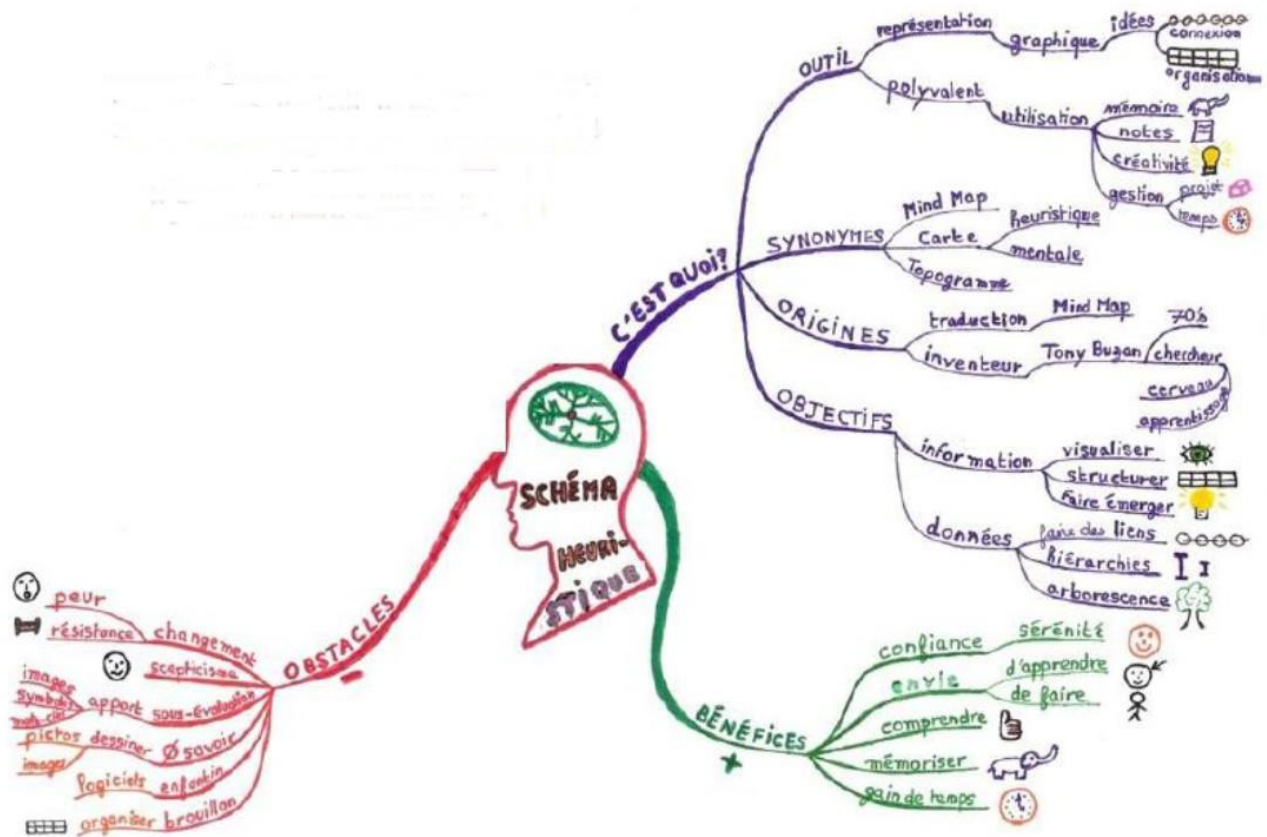 SCHÉMA
HEURI-
STIQUE
C'EST QUOI?
OUTIL
représentation
graphique
idées
connexion
organisation
polyvalent
utilisation
mémoire
notes
créativité
gestion
projet
temps
SYNONYMES
Mind Map
Carte
heuristique
mentale
Topogramme
ORIGINES
traduction
Mind Map
inventeur
Tony Buzan
70's
chercheur
cerveau
apprentissage
OBJECTIFS
information
visualiser
structurer
faire émerger
données
faire des liens
hiérarchies
arborescence
BÉNÉFICES
+
confiance
sérénité
envie
d'apprendre
de faire
comprendre
mémoriser
gain de temps
OBSTACLES
-
changement
peur
résistance
scepticisme
sous-évaluation
apport
images
symboles
mots clés
Ø savoir
dessiner
pictos
images
enfantin
logiciels
brouillon
organiser